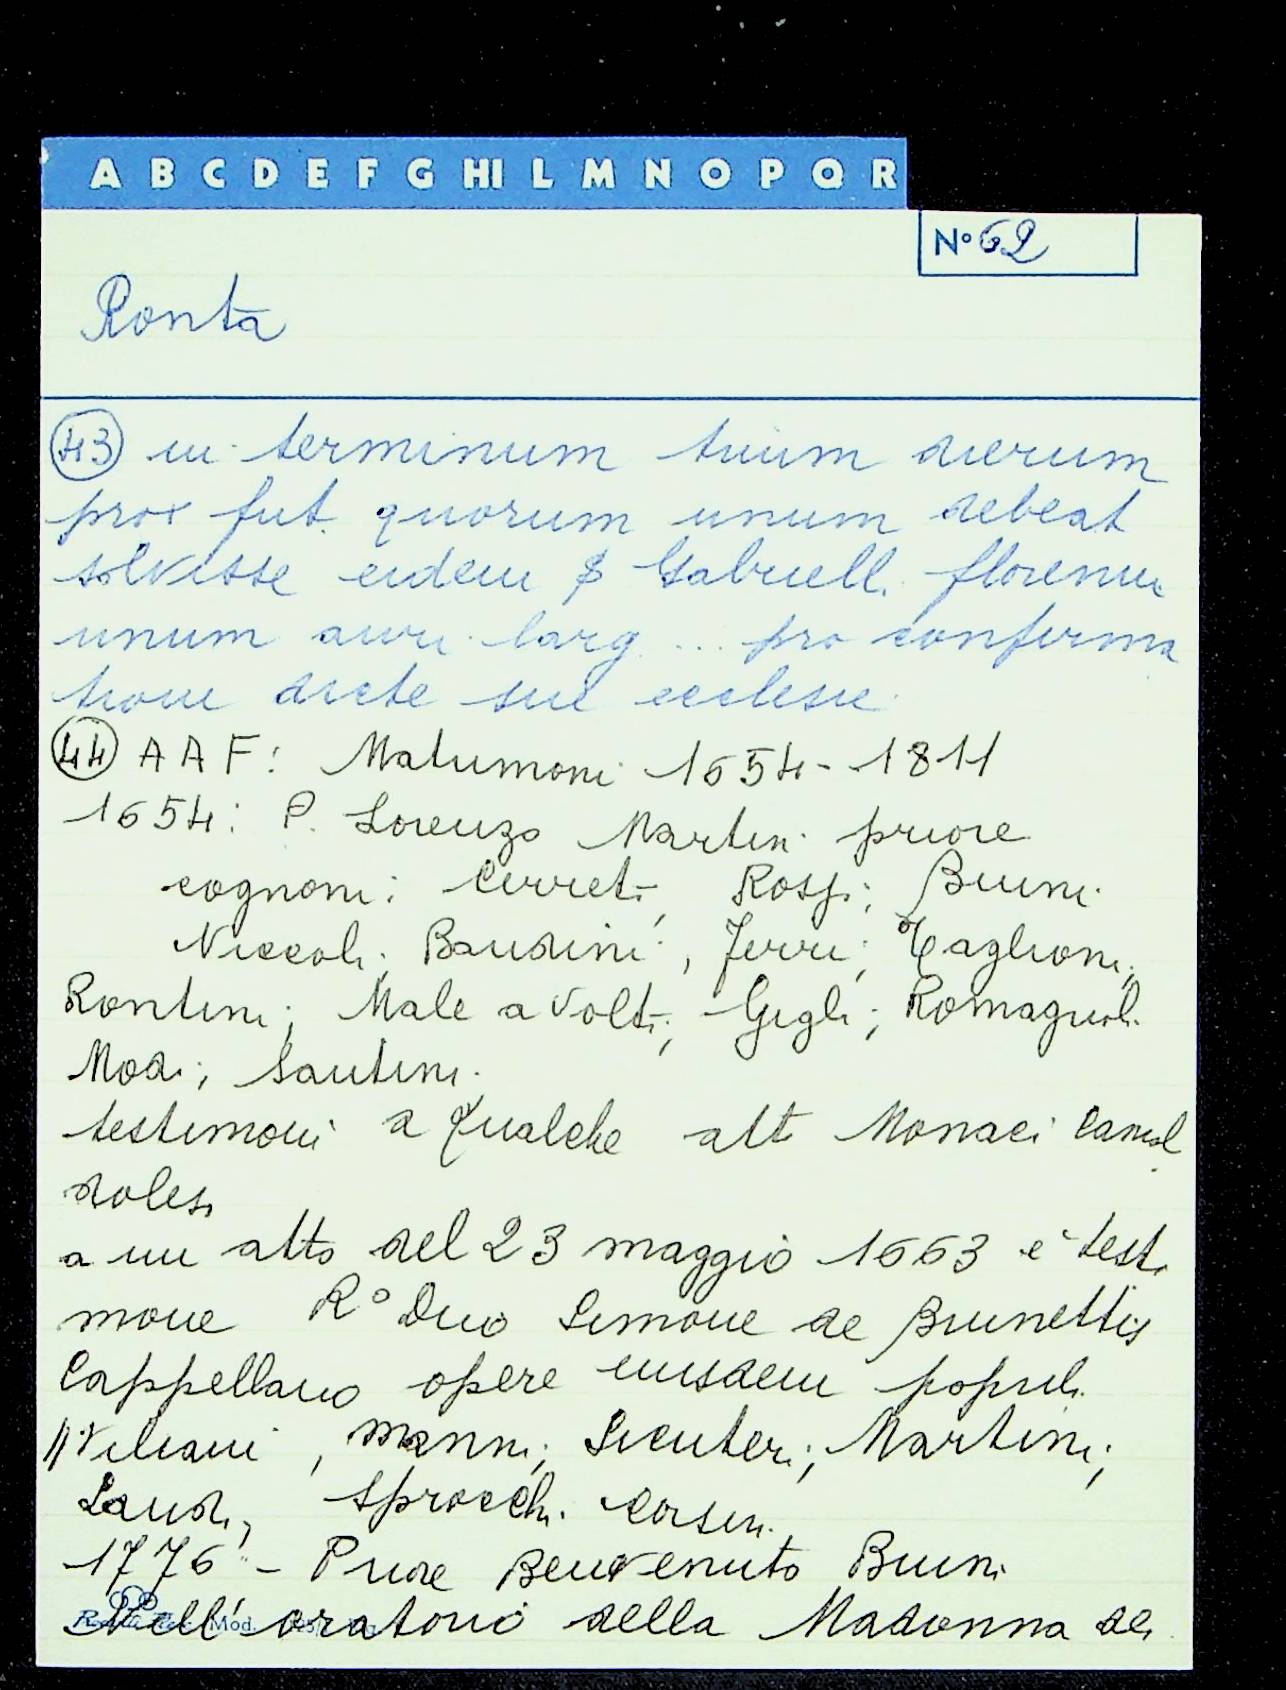 A B C D E F G HI L M N O P Q R
N° 62
Ronta
43 in terminum trium dierum
prox fut. quorum unum debeat
solvisse eidem Gabriell. florenum
unum auri larg ... pro confirma
tione dicte sue ecclesie
44 A A F: Matrimoni 1654-1811
1654: P. Lorenzo Martini priore
cognomi: Cerreti, Rossi; Bruni
Niccoli; Bandini, Ferri; Taglioni;
Rontini; Male a volti; Gigli; Romagnoli
Modi; Santini.
testimoni a qualche atto Monaci Camal
dolesi
a un atto del 23 maggio 1663 è testi
mone R° Dno Simone de Brunettis
Cappellano opere eiusdem populi
Viliani, Manni; Sicuteri; Martini;
Landi, Sprocchi. Corsini.
1776 - Priore Benvenuto Bruni
Nell'oratorio della Madonna dei
Mod.